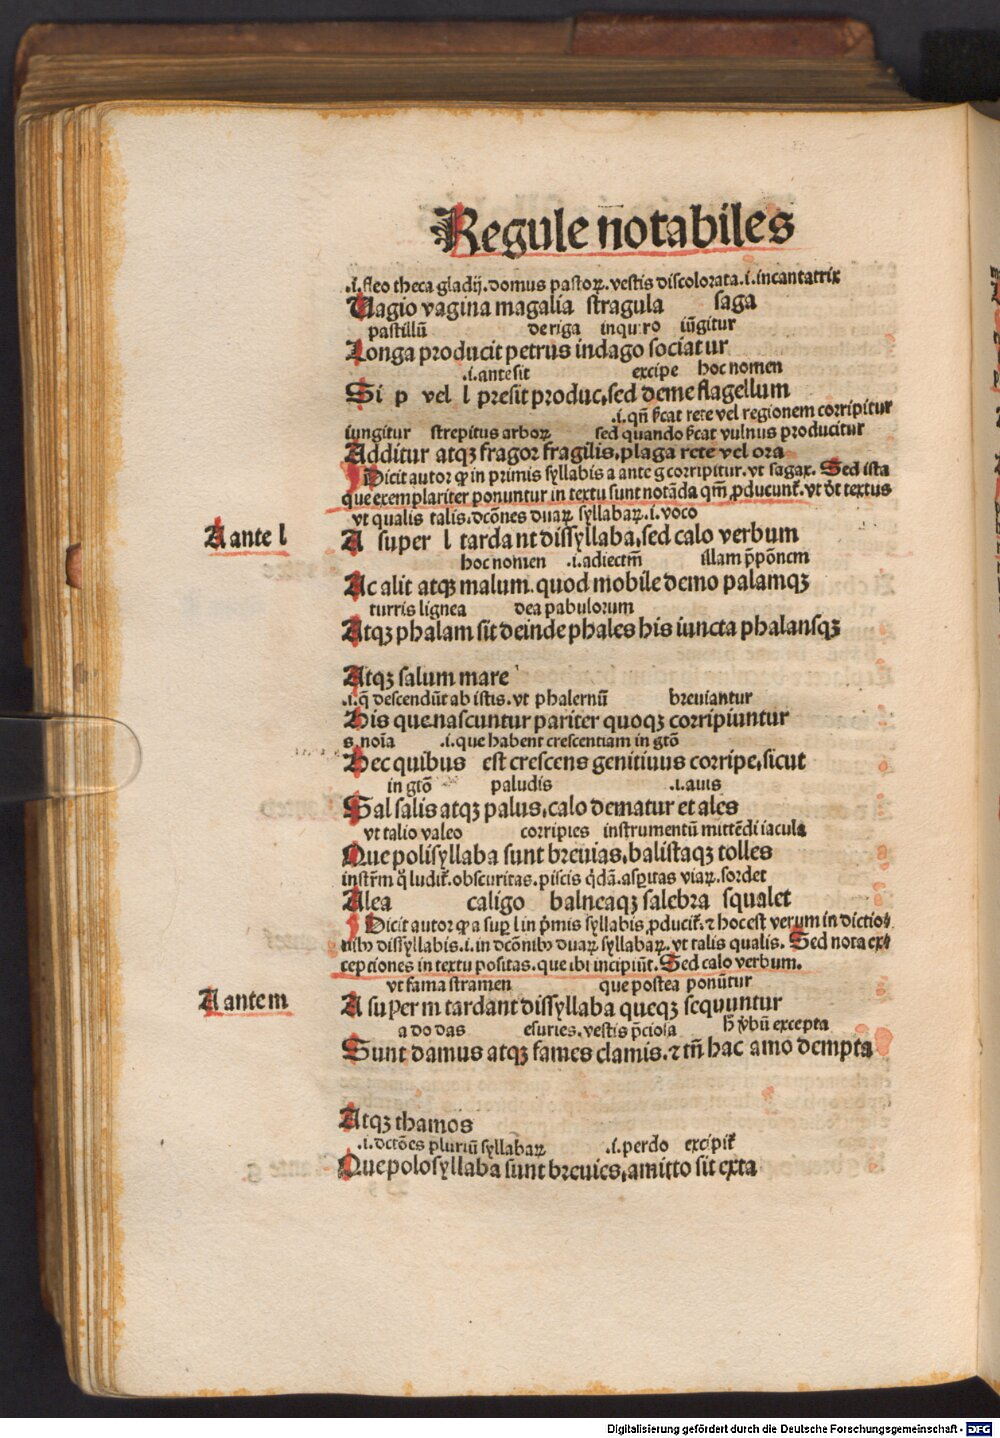 Regule notabiles
.i. fleo theca gladij. domus pastoꝝ. vestis discolorata. i. incantatrix
Uagio vagina magalia stragula saga
pastillū de riga inquiro iūgitur
Longa producit petrus indago sociatur
.i. ante sit excipe hoc nomen
Si p vel l presit produc, sed deme flagellum
.i. qn̄ ſcat rete vel regionem corripitur
iungitur strepitus arboꝝ sed quando ſcat vulnus producitur
Additur atqꝫ fragor fragilis, plaga rete vel ora
¶ Dicit autor ꝙ in primis syllabis a ante g corripitur. vt sagax. Sed ista
que exemplariter ponuntur in textu sunt notāda qm̄ ꝓducunt᷑. vt dt̄ textus
vt qualis talis. dcōnes duaꝝ syllabaꝝ. i. voco
A ante l
A super l tardant dissyllaba, sed calo verbum
hoc nomen .i. adiectm̄ illam p̄pōnem
Ac alit atqꝫ malum. quod mobile demo palamqꝫ
turris lignea dea pabulorum
Atqꝫ phalam sit deinde phales his iuncta phalansqꝫ
Atqꝫ salum mare
.i. q̄ descendūt ab istis. vt phalernū breuiantur
His que nascuntur pariter quoqꝫ corripiuntur
s. noīa .i. que habent crescentiam in gtō
Hec quibus est crescens genitiuus corripe, sicut
in gtō paludis .i. auis
Sal salis atqꝫ palus, calo dematur et ales
vt talio valeo corripies instrumentū mittēdi iacula
Que polisyllaba sunt breuias, balistaqꝫ tolles
instr̄m q̊ ludit᷑. obscuritas. piscis q̇dā. asꝑitas viaꝝ. sordet
Alea caligo balneaqꝫ salebra squalet
¶ Dicit autor ꝙ a suꝑ l in p̄mis syllabis ꝓducit᷑. ⁊ hoc est verum in dictio⸗
nibꝫ dissyllabis. i. in dcōnibꝫ duaꝝ syllabaꝝ. vt talis qualis. Sed nota ex⸗
ceptiones in textu positas. que ibi incipiūt. Sed calo verbum.
vt fama stramen que postea ponūtur
A ante m
A super m tardant dissyllaba queqꝫ sequuntur
a do das esuries. vestis p̄ciosa h̄ v̇bū excepta
Sunt damus atqꝫ fames clamis. ⁊ tn̄ hac amo dempta
Atqꝫ thamos
.i. dctōes pluriū syllabaꝝ .i. perdo excipit᷑
Que polosyllaba sunt breuies, amitto sit exta
Digitalisierung gefördert durch die Deutsche Forschungsgemeinschaft - DFG